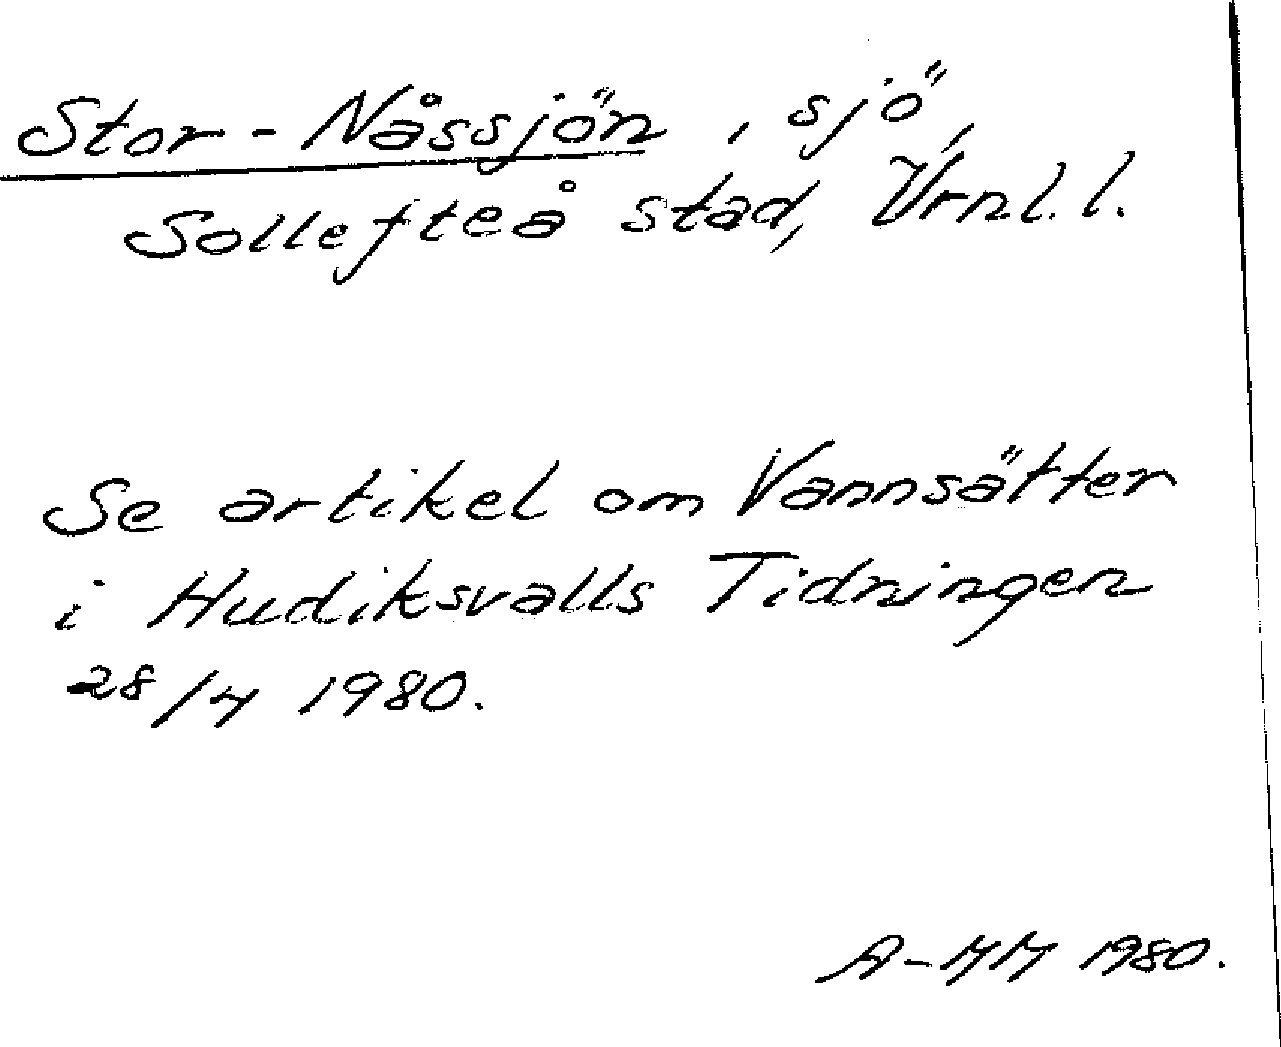 Stor-Nåssjön, sjö,
Sollefteå stad, Vrnl. l.
Se artikel om Vannsätter
i Hudiksvalls Tidningen
28/4 1980.
A-MM 1980.